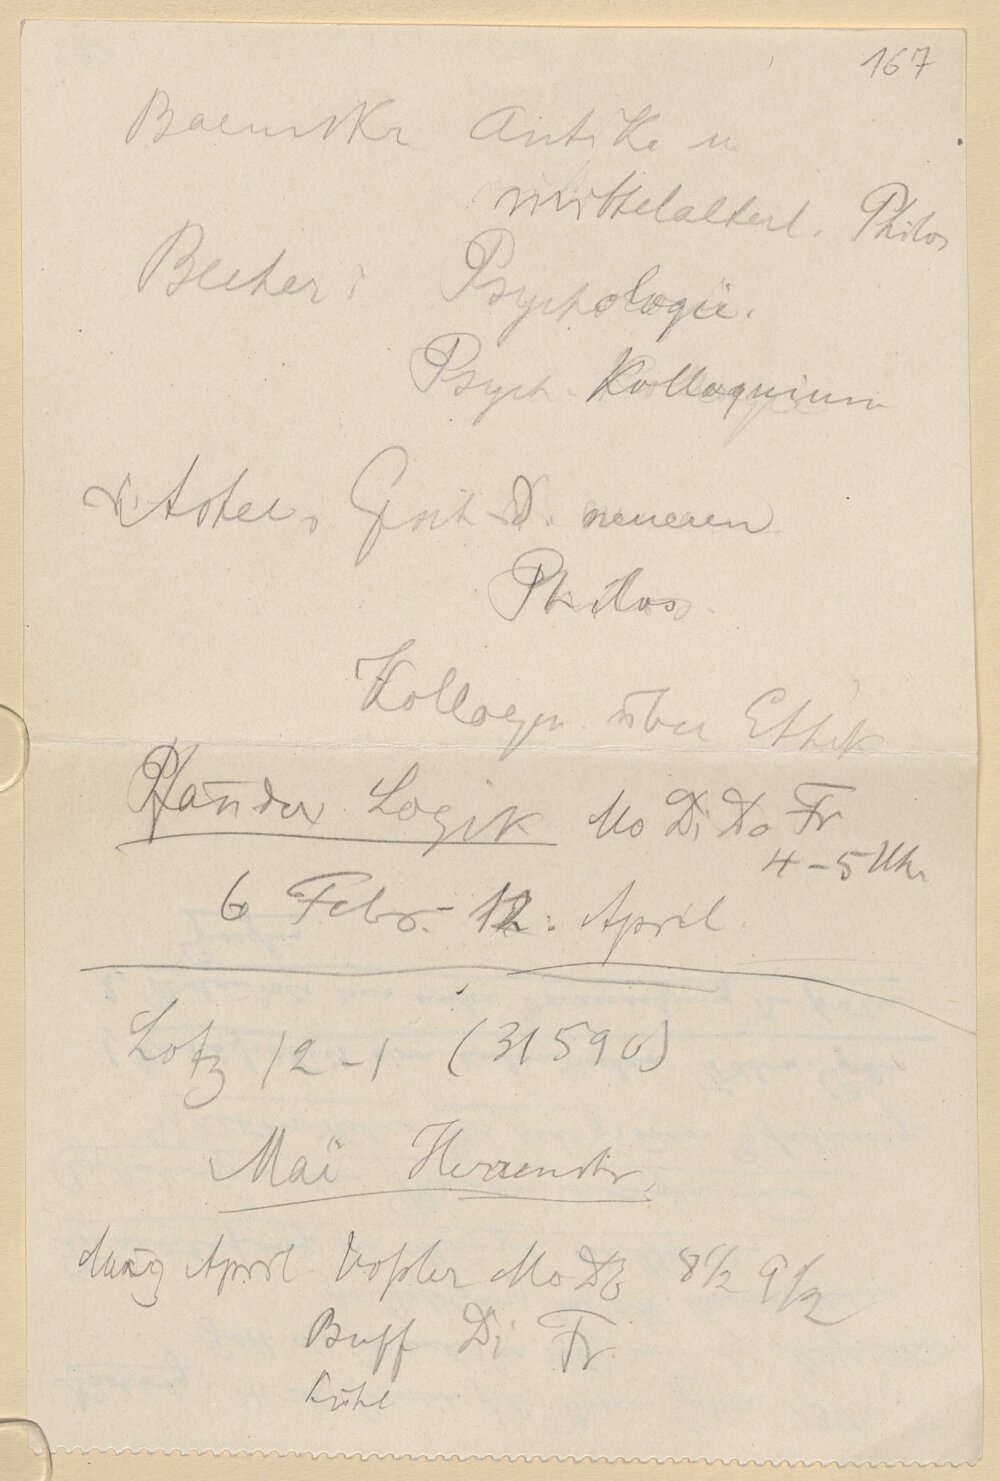 167
Baeumker Antike u
mittelalterl. Philos
Becher: Psychologie.
Psych. Kolloquium
Aster, Gesch. d. neueren
Philos
Kolloqu. über Ethik
Pfänder Logik Mo Di Do Fr
4-5 Uhr
6 Febr. 12. April
Lotz 12-1 (31590)
Mai Herrenstr.
April Voßler Mo Do 8 1/2 9 1/2
Buff Di Fr